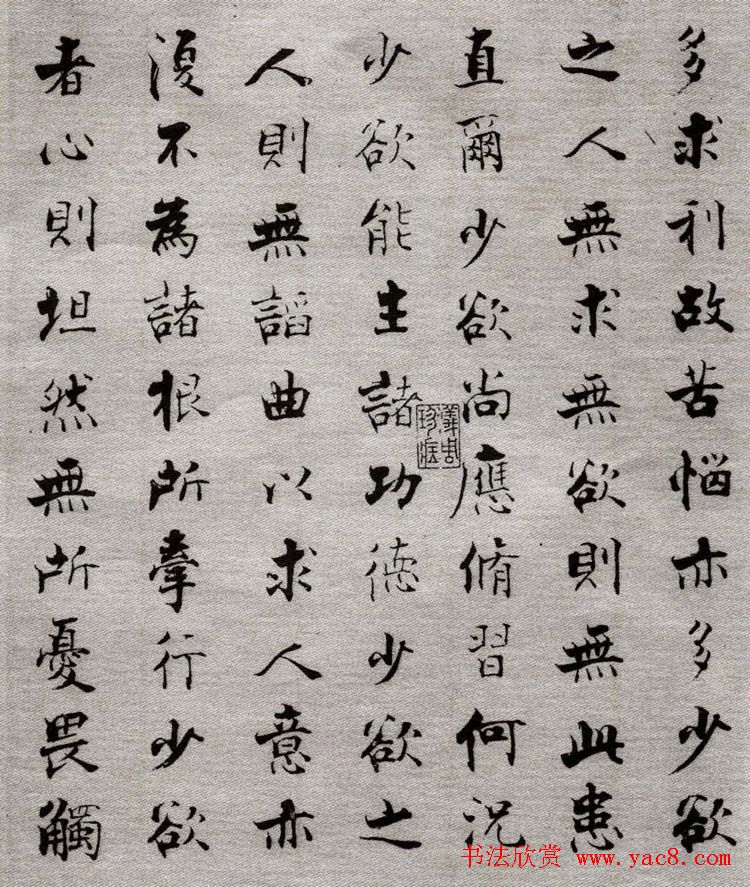 多求利故苦惱亦多少欲
之人無求無欲則無此患
直爾少欲尚應脩習何況
少欲能生諸功德少欲之
人則無諂曲以求人意亦
復不為諸根所牽行少欲
者心則坦然無所憂畏觸
儀周珍藏
书法欣赏 www.yac8.com